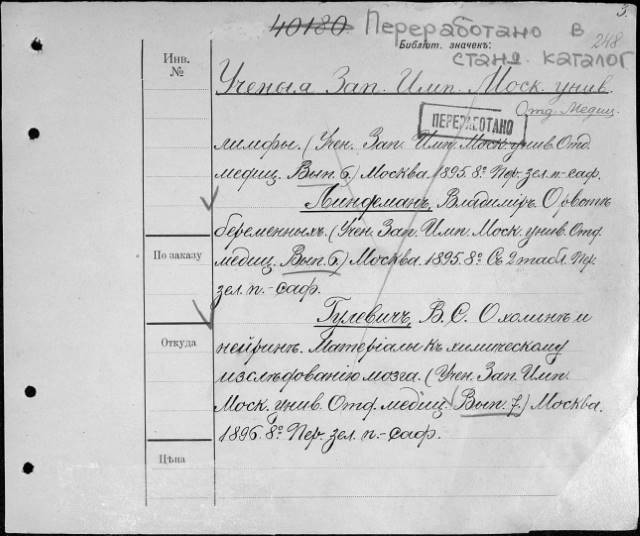 3.
40180 Переработано в
Библіот. значекъ: 248
станд. каталог
Инв.
№
Ученыя Зап. Имп. Моск. унив.
Отд. Медиц.
ПЕРЕРАБОТАНО
лимфы. (Учен. Зап. Имп. Моск. унив. Отд.
медиц. Вып. 6) Москва. 1895. 8º. Пер. зел. п.-саф.
Линдеманъ, Владиміръ. О рвотѣ
беременныхъ. (Учен. Зап. Имп. Моск. унив. Отд.
По заказу
медиц. Вып. 6) Москва. 1895. 8º. Съ 2 табл. Пер.
зел. п.-саф.
Гулевичъ, В. С. О холинѣ и
Откуда
нейринѣ. Матеріалы къ химическому
изслѣдованію мозга. (Учен. Зап. Имп.
Моск. унив. Отд. медиц. Вып. 7.) Москва.
1896. 8º. Пер. зел. п.-саф.
Цѣна